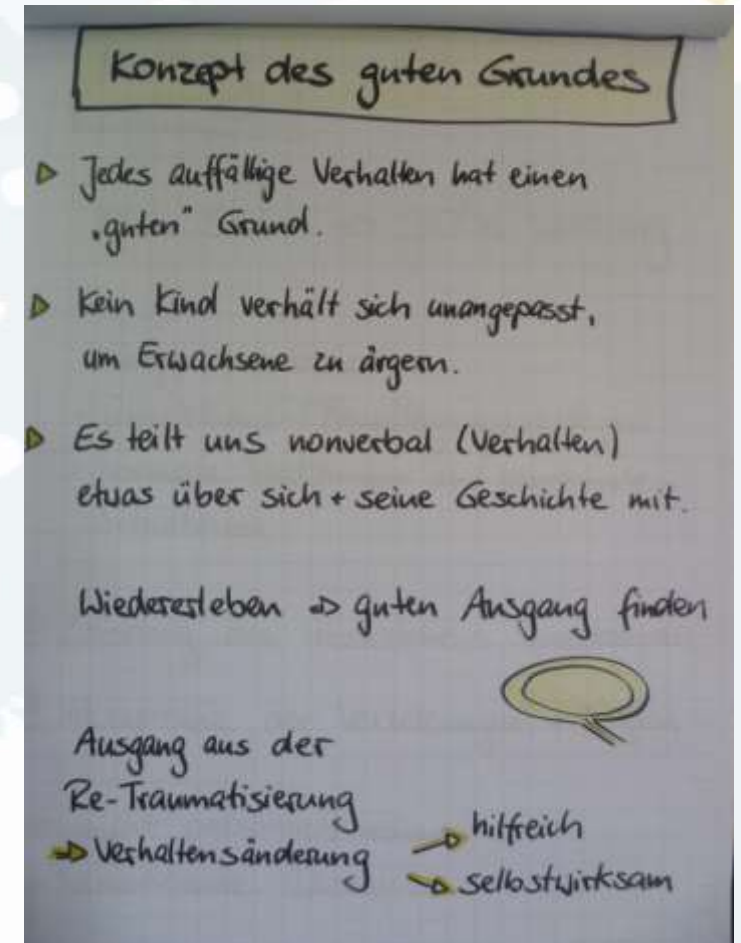 Konzept des guten Grundes
Jedes auffällige Verhalten hat einen
„guten" Grund.
Kein Kind verhält sich unangepasst,
um Erwachsene zu ärgern.
Es teilt uns nonverbal (Verhalten)
etwas über sich + seine Geschichte mit.
Wiedererleben ⇒ guten Ausgang finden
Ausgang aus der
Re-Traumatisierung
⇒ Verhaltensänderung
→ hilfreich
→ selbstwirksam